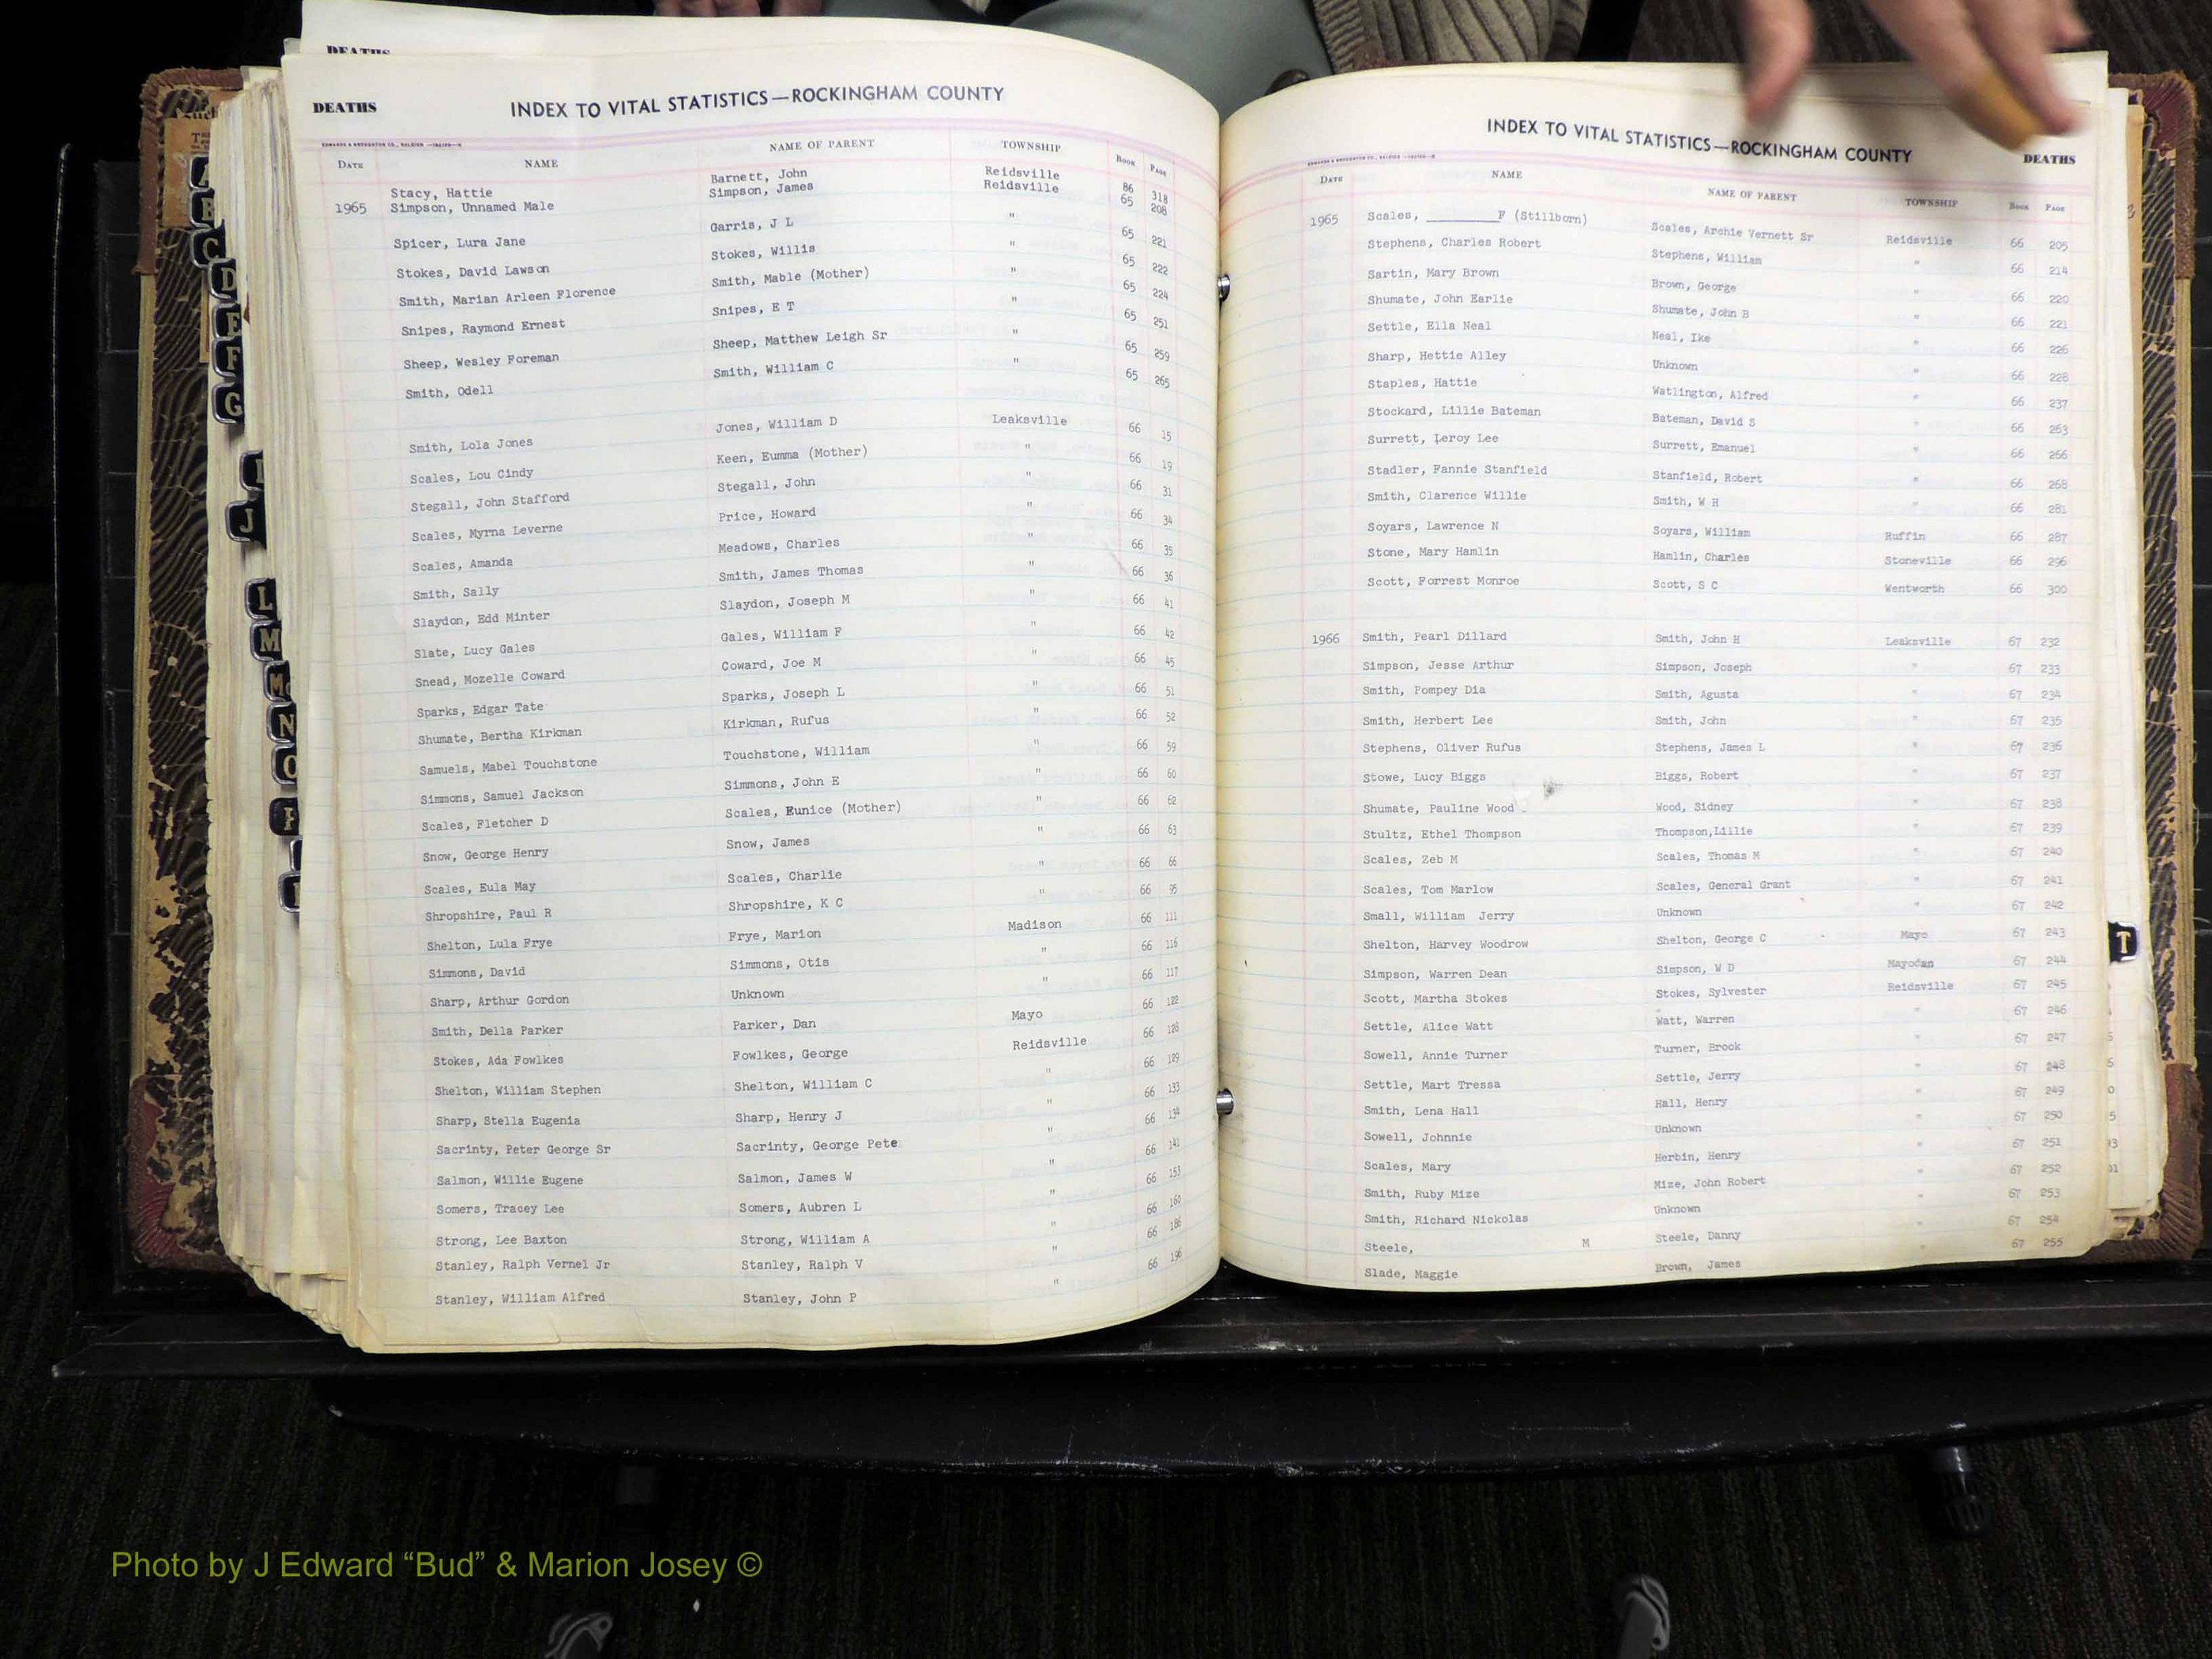 DEATHS
DEATHS
INDEX TO VITAL STATISTICS—ROCKINGHAM COUNTY
DATE NAME NAME OF PARENT TOWNSHIP BOOK PAGE
Stacy, Hattie Barnett, John Reidsville 86 318
1965 Simpson, Unnamed Male Simpson, James Reidsville 65 208
Spicer, Lura Jane Garris, J L " 65 221
Stokes, David Lawson Stokes, Willis " 65 222
Smith, Marian Arleen Florence Smith, Mable (Mother) " 65 224
Snipes, Raymond Ernest Snipes, E T " 65 251
Sheep, Wesley Foreman Sheep, Matthew Leigh Sr " 65 259
Smith, Odell Smith, William C " 65 265
Smith, Lola Jones Jones, William D Leaksville 66 15
Scales, Lou Cindy Keen, Eumma (Mother) " 66 19
Stegall, John Stafford Stegall, John " 66 31
Scales, Myrna Leverne Price, Howard " 66 34
Scales, Amanda Meadows, Charles " 66 35
Smith, Sally Smith, James Thomas " 66 36
Slaydon, Edd Minter Slaydon, Joseph M " 66 41
Slate, Lucy Gales Gales, William F " 66 42
Snead, Mozelle Coward Coward, Joe M " 66 45
Sparks, Edgar Tate Sparks, Joseph L " 66 51
Shumate, Bertha Kirkman Kirkman, Rufus " 66 52
Samuels, Mabel Touchstone Touchstone, William " 66 59
Simmons, Samuel Jackson Simmons, John E " 66 60
Scales, Fletcher D Scales, Eunice (Mother) " 66 62
Snow, George Henry Snow, James " 66 63
Scales, Eula May Scales, Charlie " 66 66
Shropshire, Paul R Shropshire, K C " 66 95
Shelton, Lula Frye Frye, Marion Madison 66 111
Simmons, David Simmons, Otis " 66 116
Sharp, Arthur Gordon Unknown " 66 117
Smith, Della Parker Parker, Dan Mayo 66 122
Stokes, Ada Fowlkes Fowlkes, George Reidsville 66 128
Shelton, William Stephen Shelton, William C " 66 129
Sharp, Stella Eugenia Sharp, Henry J " 66 133
Sacrinty, Peter George Sr Sacrinty, George Pete " 66 134
Salmon, Willie Eugene Salmon, James W " 66 141
Somers, Tracey Lee Somers, Aubren L " 66 153
Strong, Lee Baxton Strong, William A " 66 160
Stanley, Ralph Vernel Jr Stanley, Ralph V " 66 186
Stanley, William Alfred Stanley, John P " 66 196
INDEX TO VITAL STATISTICS—ROCKINGHAM COUNTY
DEATHS
DATE NAME NAME OF PARENT TOWNSHIP BOOK PAGE
1965 Scales, ________F (Stillborn) Scales, Archie Vernett Sr Reidsville 66 205
Stephens, Charles Robert Stephens, William " 66 214
Sartin, Mary Brown Brown, George " 66 220
Shumate, John Earlie Shumate, John B " 66 221
Settle, Ella Neal Neal, Ike " 66 226
Sharp, Hettie Alley Unknown " 66 228
Staples, Hattie Watlington, Alfred " 66 237
Stockard, Lillie Bateman Bateman, David S " 66 263
Surrett, Leroy Lee Surrett, Emanuel " 66 266
Stadler, Fannie Stanfield Stanfield, Robert " 66 268
Smith, Clarence Willie Smith, W H " 66 281
Soyars, Lawrence N Soyars, William Ruffin 66 287
Stone, Mary Hamlin Hamlin, Charles Stoneville 66 296
Scott, Forrest Monroe Scott, S C Wentworth 66 300
1966 Smith, Pearl Dillard Smith, John H Leaksville 67 232
Simpson, Jesse Arthur Simpson, Joseph " 67 233
Smith, Pompey Dia Smith, Agusta " 67 234
Smith, Herbert Lee Smith, John " 67 235
Stephens, Oliver Rufus Stephens, James L " 67 236
Stowe, Lucy Biggs Biggs, Robert " 67 237
Shumate, Pauline Wood Wood, Sidney " 67 238
Stultz, Ethel Thompson Thompson,Lillie " 67 239
Scales, Zeb M Scales, Thomas M " 67 240
Scales, Tom Marlow Scales, General Grant " 67 241
Small, William Jerry Unknown " 67 242
Shelton, Harvey Woodrow Shelton, George C Mayo 67 243
Simpson, Warren Dean Simpson, W D Mayodan 67 244
Scott, Martha Stokes Stokes, Sylvester Reidsville 67 245
Settle, Alice Watt Watt, Warren " 67 246
Sowell, Annie Turner Turner, Brook " 67 247
Settle, Mart Tressa Settle, Jerry " 67 248
Smith, Lena Hall Hall, Henry " 67 249
Sowell, Johnnie Unknown " 67 250
Scales, Mary Herbin, Henry " 67 251
Smith, Ruby Mize Mize, John Robert " 67 252
Smith, Richard Nickolas Unknown " 67 253
Steele, M Steele, Danny " 67 254
Slade, Maggie Brown, James " 67 255
A
B
C
D
E
F
G
I
J
L
M
Mc
N
O
P
T
Photo by J Edward “Bud” & Marion Josey ©